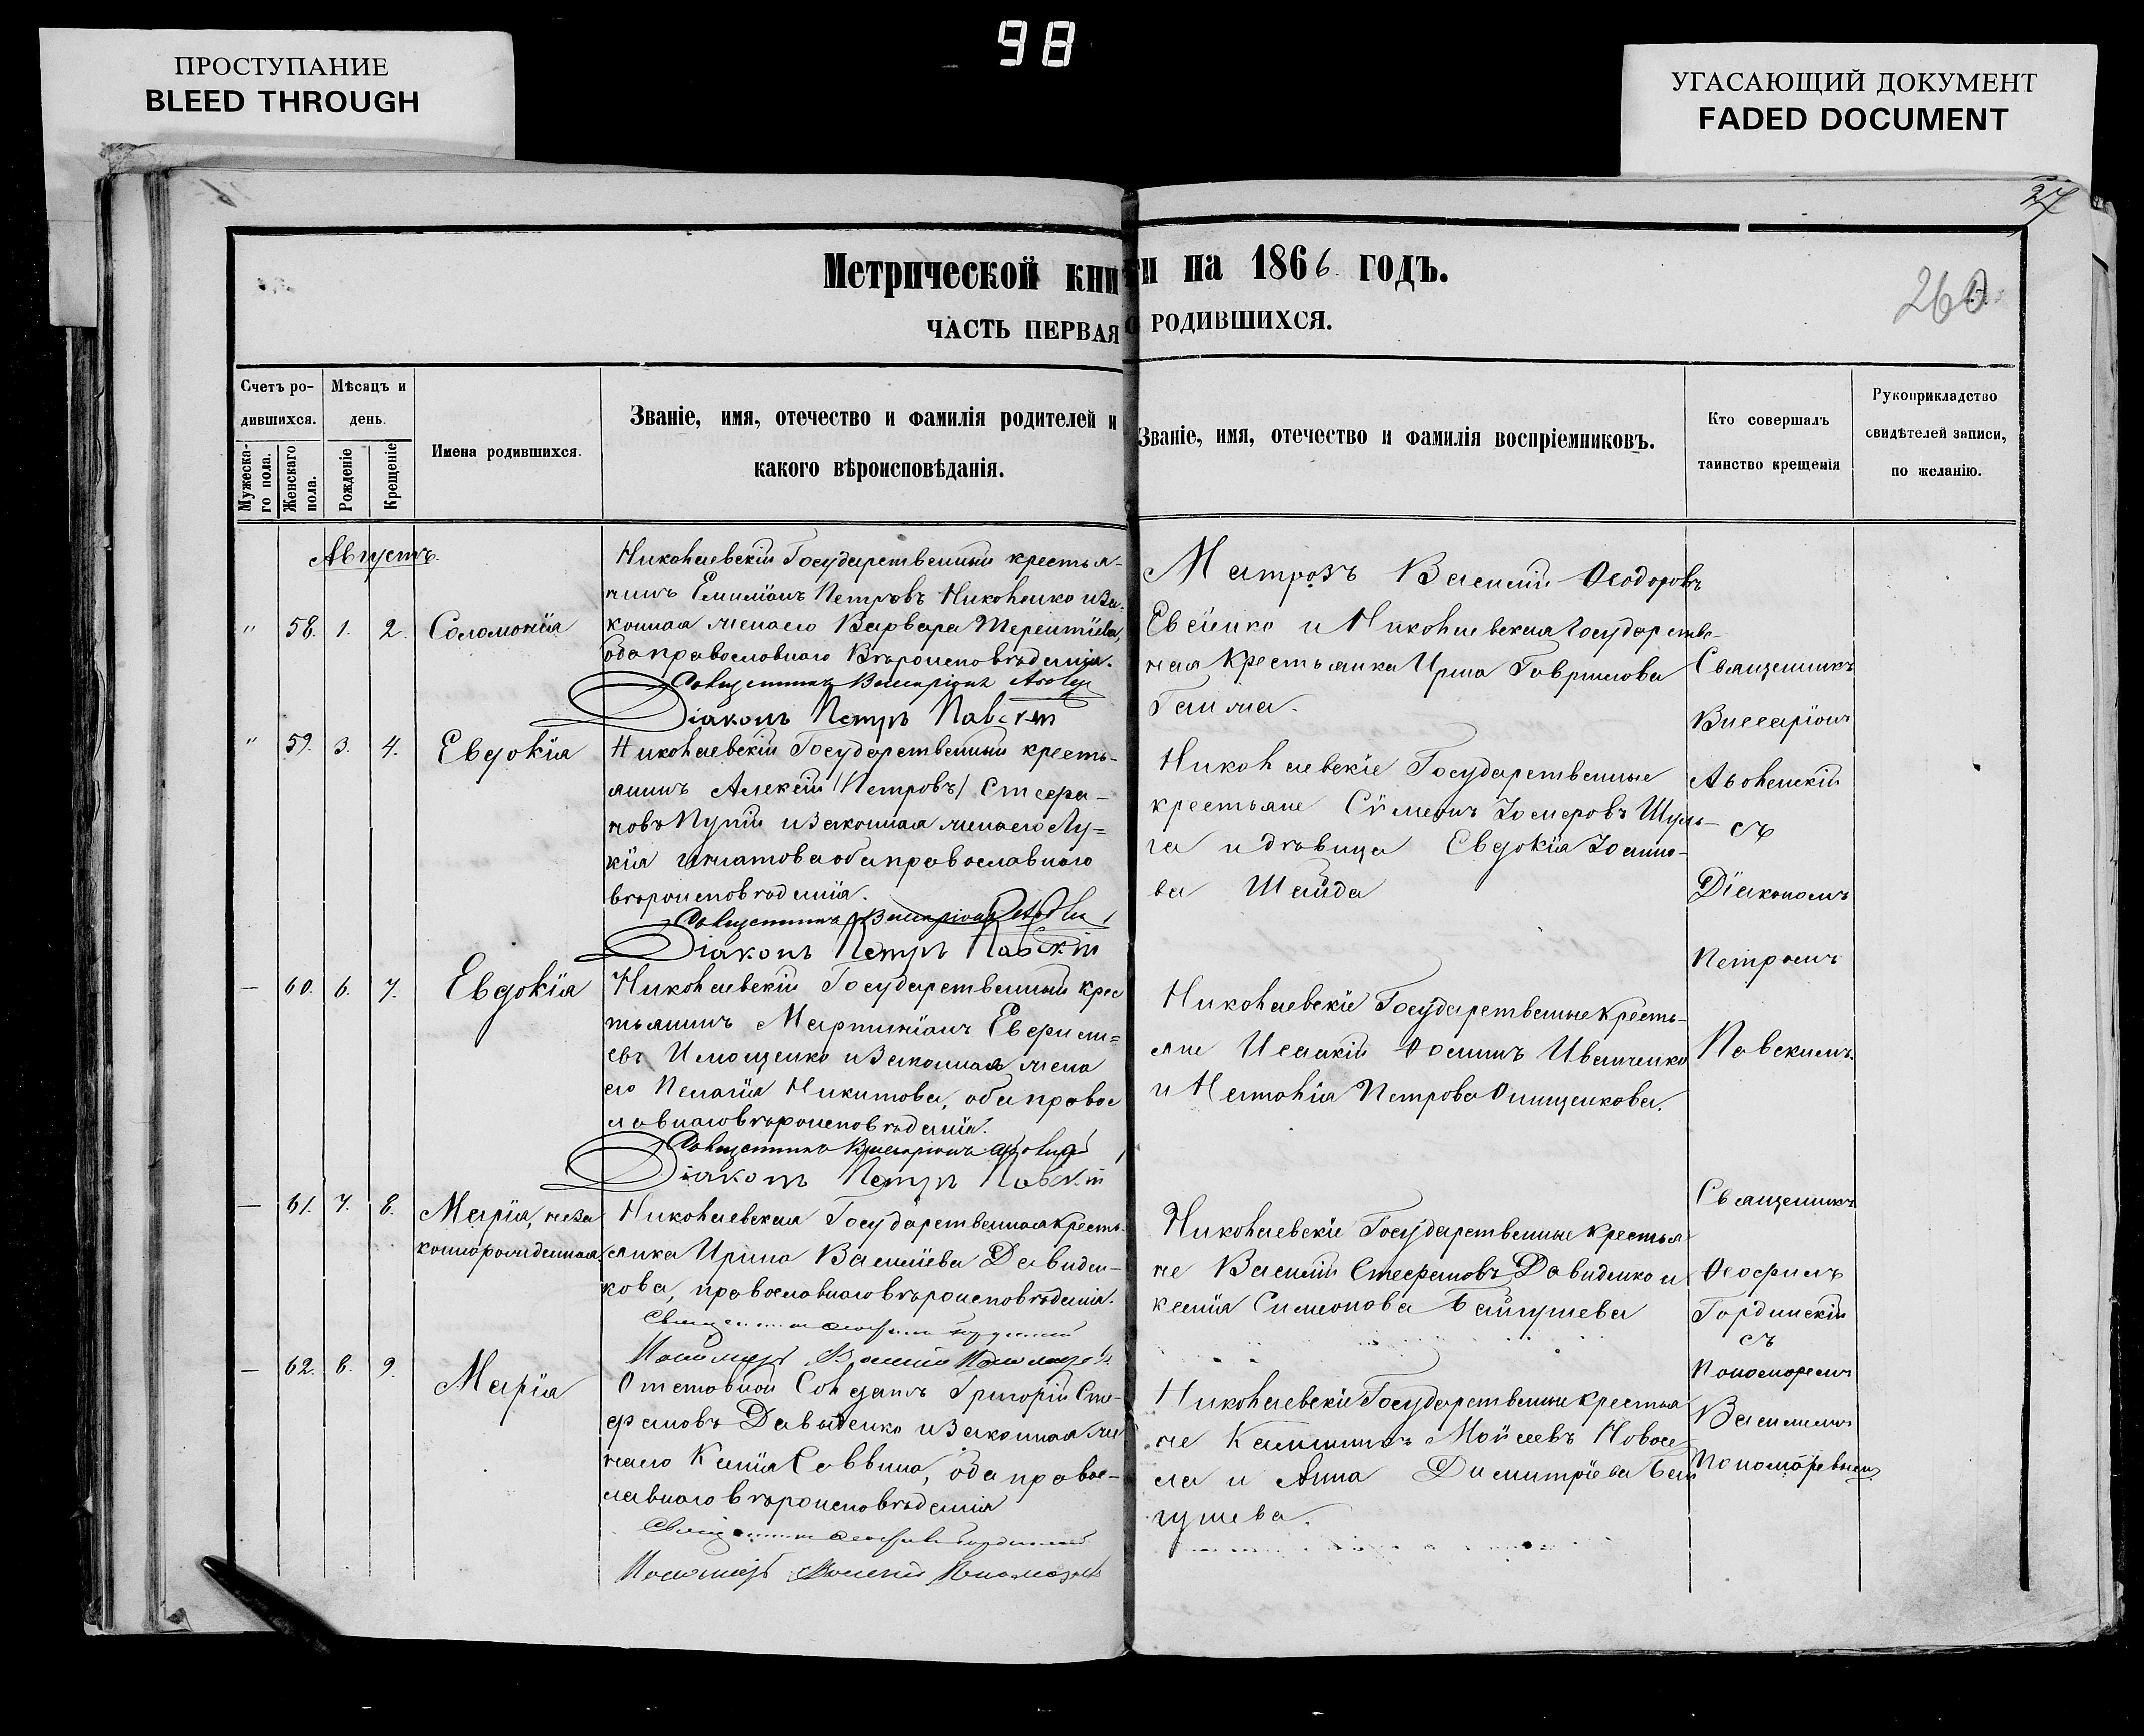 98
ПРОСТУПАНИЕ
BLEED THROUGH
УГАСАЮЩИЙ ДОКУМЕНТ
FADED DOCUMENT
27
260
Метрической книги на 1866 годъ.
ЧАСТЬ ПЕРВАЯ О РОДИВШИХСЯ.
Счетъ ро-
дившихся.
Мужеска-
го пола.
Женскаго
пола.
Мѣсяцъ и
день.
Рожденіе
Крещеніе
Имена родившихся.
Званіе, имя, отечество и фамилія родителей и
какого вѣроисповѣданія.
Званіе, имя, отечество и фамилія воспріемниковъ.
Кто совершалъ
таинство крещенія
Рукоприкладство
свидѣтелей записи,
по желанію.
Августъ.
" 58. 1. 2. Соломонія
Николаевскій Государственный крестья-
нинъ Емиліанъ Петровъ Николенко и за-
конная жена его Варвара Терентіева,
оба православнаго Вѣроисповѣданія.
Священникъ Виссаріонъ
Діаконъ Петръ Павскій
Матрозъ Василій Ѳеодоровъ
Евсіенко и Николаевская Государстве-
ная Крестьянка Ирина Гавриилова
" 59. 3. 4. Евдокія
Николаевскій Государственный кресть-
янинъ Алексій /Петровъ/ Стефа-
новъ и законная жена его Лу-
кія Игнатова оба православнаго
вѣроисповѣданія.
Священникъ Виссаріонъ
Діаконъ Петръ Павскій
Николаевскіе Государственные
крестьяне Сѵмеонъ Шуль-
га и дѣвица Евдокія Іоанно-
ва Шайда
— 60. 6. 7. Евдокія
Николаевскій Государственный крес
тьянинъ Мартиніанъ
евъ Имощенко и законная жена
его Пелагія Никитова, оба правос
лавнаго вѣроисповѣданія.
Священникъ Виссаріонъ
Діаконъ Петръ Павскій
Николаевскіе Государственные Кресть-
яне Исаакій Иванченко
и Наталія Петрова Онищенкова.
Священникъ
Виссаріонъ
съ
Діакономъ
Петромъ
Павскимъ.
— 61. 7. 8. Марія, неза
коннорожденная
Николаевская Государственная кресть-
янка Ирина Василіева Давиден-
кова, православнаго вѣроисповѣданія.
Священникъ Гординскій
Пономарь Василій Пономаревъ
Николаевскіе Государственные крестья
не Василій Стефановъ Давиденко и
Ксенія Симеонова Байгушева
— 62. 8. 9. Марія
Отставной Солдатъ Григорій Сте-
фановъ Давыденко и законная же
на его Ксенія Саввина, оба правос-
лавнаго вѣроисповѣданія
Священникъ Гординскій
Пономарь Василій Пономаревъ
Николаевскіе Государственные крестья
не Каллиникъ Моѵсеевъ Новосе
ла и Анна Димитріева Бай
гушева.
Священникъ
Ѳеофилъ
Гординскій
съ
Пономаремъ
Василіемъ
Пономаревымъ